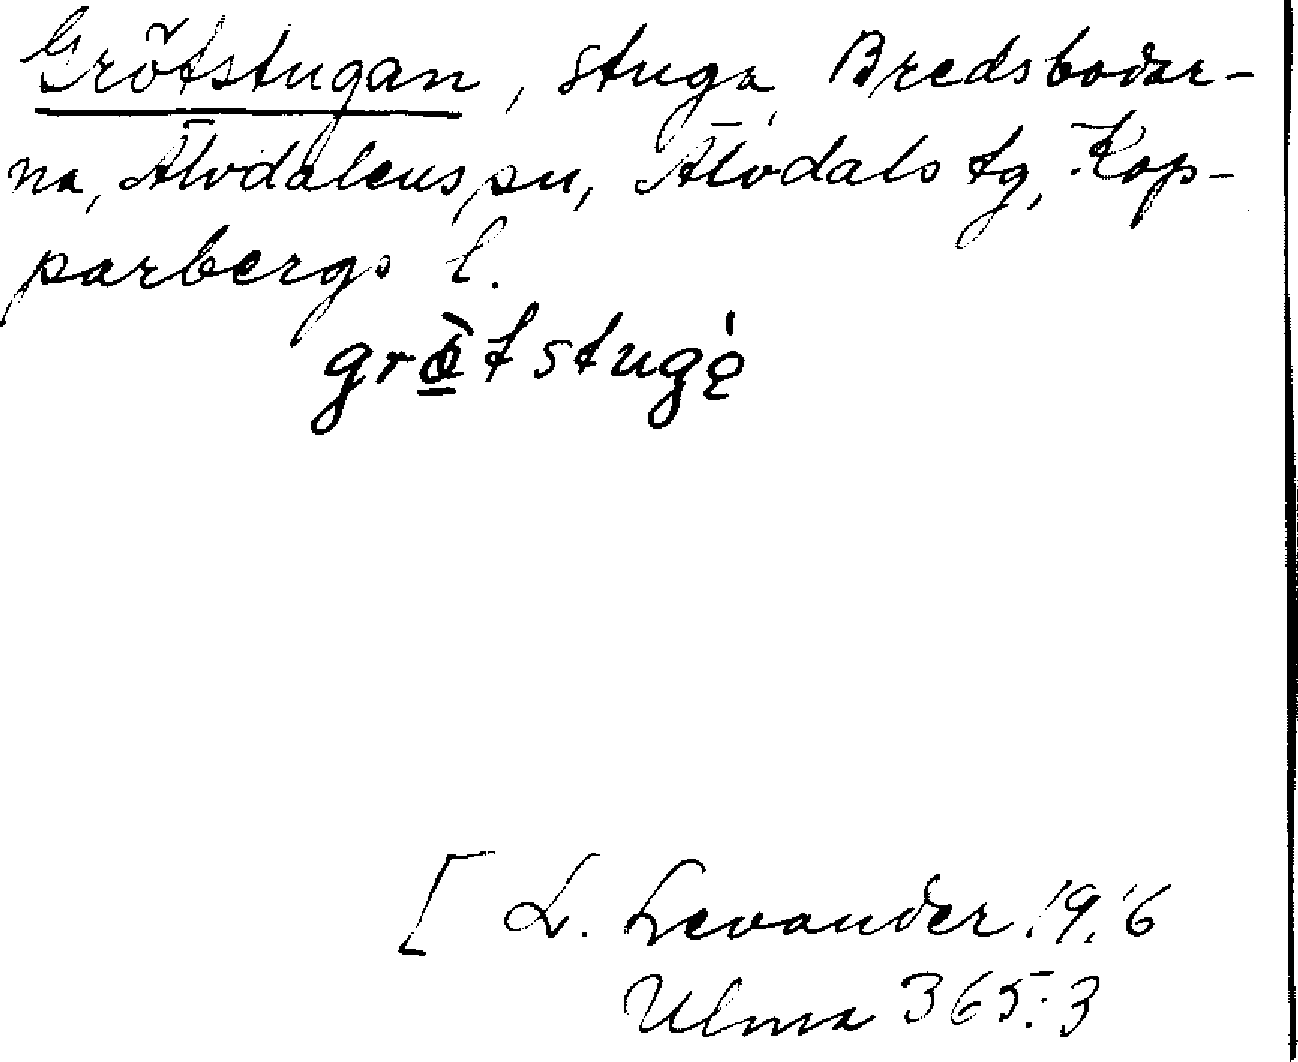 Grötstugan, stuga, Bredsbodar-
na, Älvdalens sn, Älvdals tg, Kop-
parbergs l.
grö̀tstugę̍
[ L. Levander 1916
Ulma 365:3